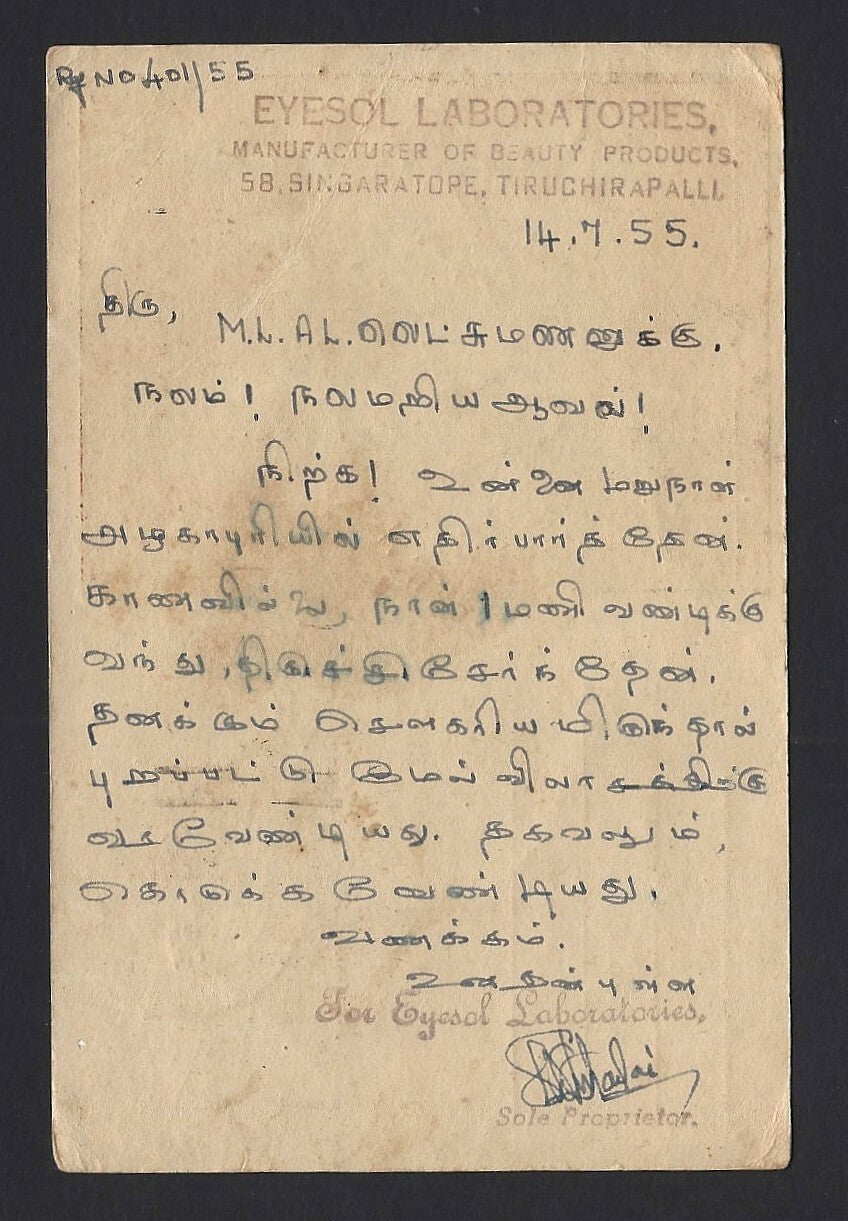 Ref NO 401/55
EYESOL LABORATORIES,
MANUFACTURER OF BEAUTY PRODUCTS,
58, SINGARATOPE, TIRUCHIRAPALLI.
14.7.55.
திரு,
M.L.AL.லெட்சுமணனுக்கு.
நலம்! நலமறிய ஆவல்!
நிற்க! உன்னை மறுநாள்
அழகாபுரியில் எதிர்பார்த்தேன்.
காணவில்லை, நான் 1 மணி வண்டிக்கு
வந்து, திருச்சி சேர்ந்தேன்.
தனக்கும் சௌகரியமிருந்தால்
புறப்பட்டு இமல் விலாசத்திற்கு
வர வேண்டியது. தகவலும்,
கொடுக்க வேண்டியது.
வணக்கம்.
உன தன்புள்ள
For Eyesol Laboratories,
Sole Proprietor.